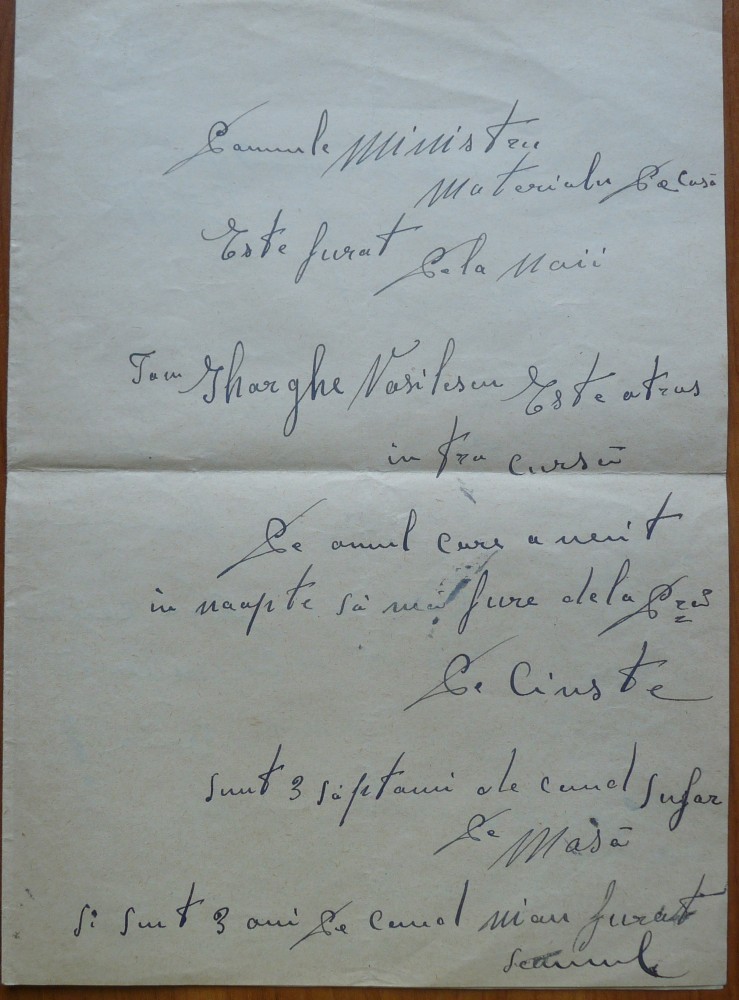 Domnule Ministru
Materialu De casă
Este furat Dela Maii
Tom Gharghe Vasilescu Este atras
in tro cursă
De omul care a venit
in noapte să mă fure dela
De Cinste
sunt 3 săptami de cand sufar
De Masă
Si sunt 3 ani De cand miau furat
scaunul